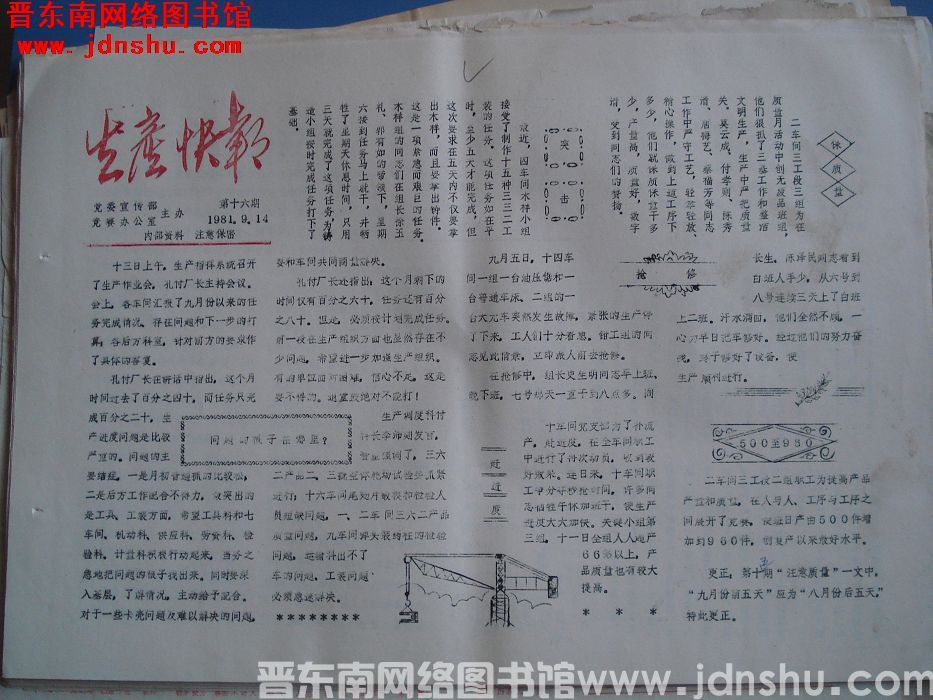 晋东南网络图书馆
www.jdnshu.com
生产快报
党委宣传部
党委办公室
主办
第十六期
1981.9.14
内部资料 注意保密
保质量
二车间三工段三组为在
质量月活动中创无废品班组,
他们狠抓了三基工作和整洁
文明生产,生产中严把质量
关。吴云成、付孝则、陈秀
清、
工作中严守工艺,轻拿轻放,
精心操作,做到上道工序下
多少,他们就保质保量干多
少,产量高,质量好,数字
清,受到同志们的赞扬。
突击
最近,四车间木样小组
接受了制作十五种二三二工
装的任务。这项任务如在平
时,至少五天才能完成,但
这次要求在五天内不仅要拿
出木样,而且要拿出铸件。
这是一项紧急而艰巨的任务。
木样组的同志们在组长徐玉
礼、郭有如的带领下,星期
六接到任务马上就干,并牺
牲了星期天休息时间,只用
三天就完成了这项任务,为铸
造小组按时完成任务打下了
基础。
十三日上午,生产指挥系统召开
了生产作业会,孔付厂长主持会议。
会上,各车间汇报了九月份以来的任
务完成情况、存在问题和下一步的打
算;各后方科室,针对前方的要求作了
具体的答复。
孔付厂长在讲话中指出,这个月
时间过去了百分之四十,而任务只完
成百分之二十,生
产进度问题是比较
严重的。问题的主
要结症,一是月初普遍抓的比较松,
二是后方工作配合不得力,最突出的
是工具、工装方面,希望工具科和七
车间、机动科、供应科、劳资科、检
验科、计量科积极行动起来,当务之
急地把问题的根子找出来。同时要深
入基层,了解情况,主动给予配合。
对于一些卡壳问题及难以解决的问题,
问题的根子在哪里?
要和车间共同商量解决。
孔付厂长还指出,这个月剩下的
时间仅有百分之六十,任务还有百分
之八十。但是,必须按计划完成任务。
前一段在生产组织方面也虽然存在不
少问题,希望进一步加强生产组织。
有的单位面对困难,信心不足,这是
要不得的。退堂鼓绝对不能打!
生产调度科付
科长李师则发言,
着重强调了,三六
二产品二、三批壳体轮场试验要抓紧
进行;十六车间尾翅片散装和检验人
员短缺问题,一、二车间三六二产品
质量问题,九车间弹头装药柱的检验
问题,运输科出不了
车的问题,工装问题
必须急速解决。
* * * * * * * *
九月五日,十四车
间一组一台油压锯和一
台普通车床、二组的一
台天光车突然发生故障,紧张的生产停
了下来,工人们十分着急。钳工组的同
志见此情景,立即派人前去抢修。
在抢修中,组长史生明同志早上班,
晚下班,七号那天一直干到八点多。阎
抢修
长生、陈泽民同志看到
白班人手少,从六号到
八号连续三天上了白班
上二班。汗水滴田,他们全然不顾,一
心为早日把车修好。经过他们的努力奋
战,终于修好了设备,使
生产顺利进行。
赶进度
十车间党支部为了抓流
产,赶进度,在全车间职工
中进行了层次动员,收到较
好效果。连日来,十车间职
工争分夺秒抢时间,许多同
志牺牲午休加班干,使生产
进度大大加快。关键小组第
三组,十一日全组人人超产
66%以上,产
品质量也有较大
提高。
* * * *
500至960
二车间三工段二组职工为提高产品
产量和质量,在人与人、工序与工序之
间展开了竞赛,使班日产由500件增
加到960件,创复产以来最好水平。
更正:第十五期“注意质量”一文中,
“九月份前五天”应为“八月份后五天”,
特此更正。
晋东南网络图书馆 www.jdnshu.com